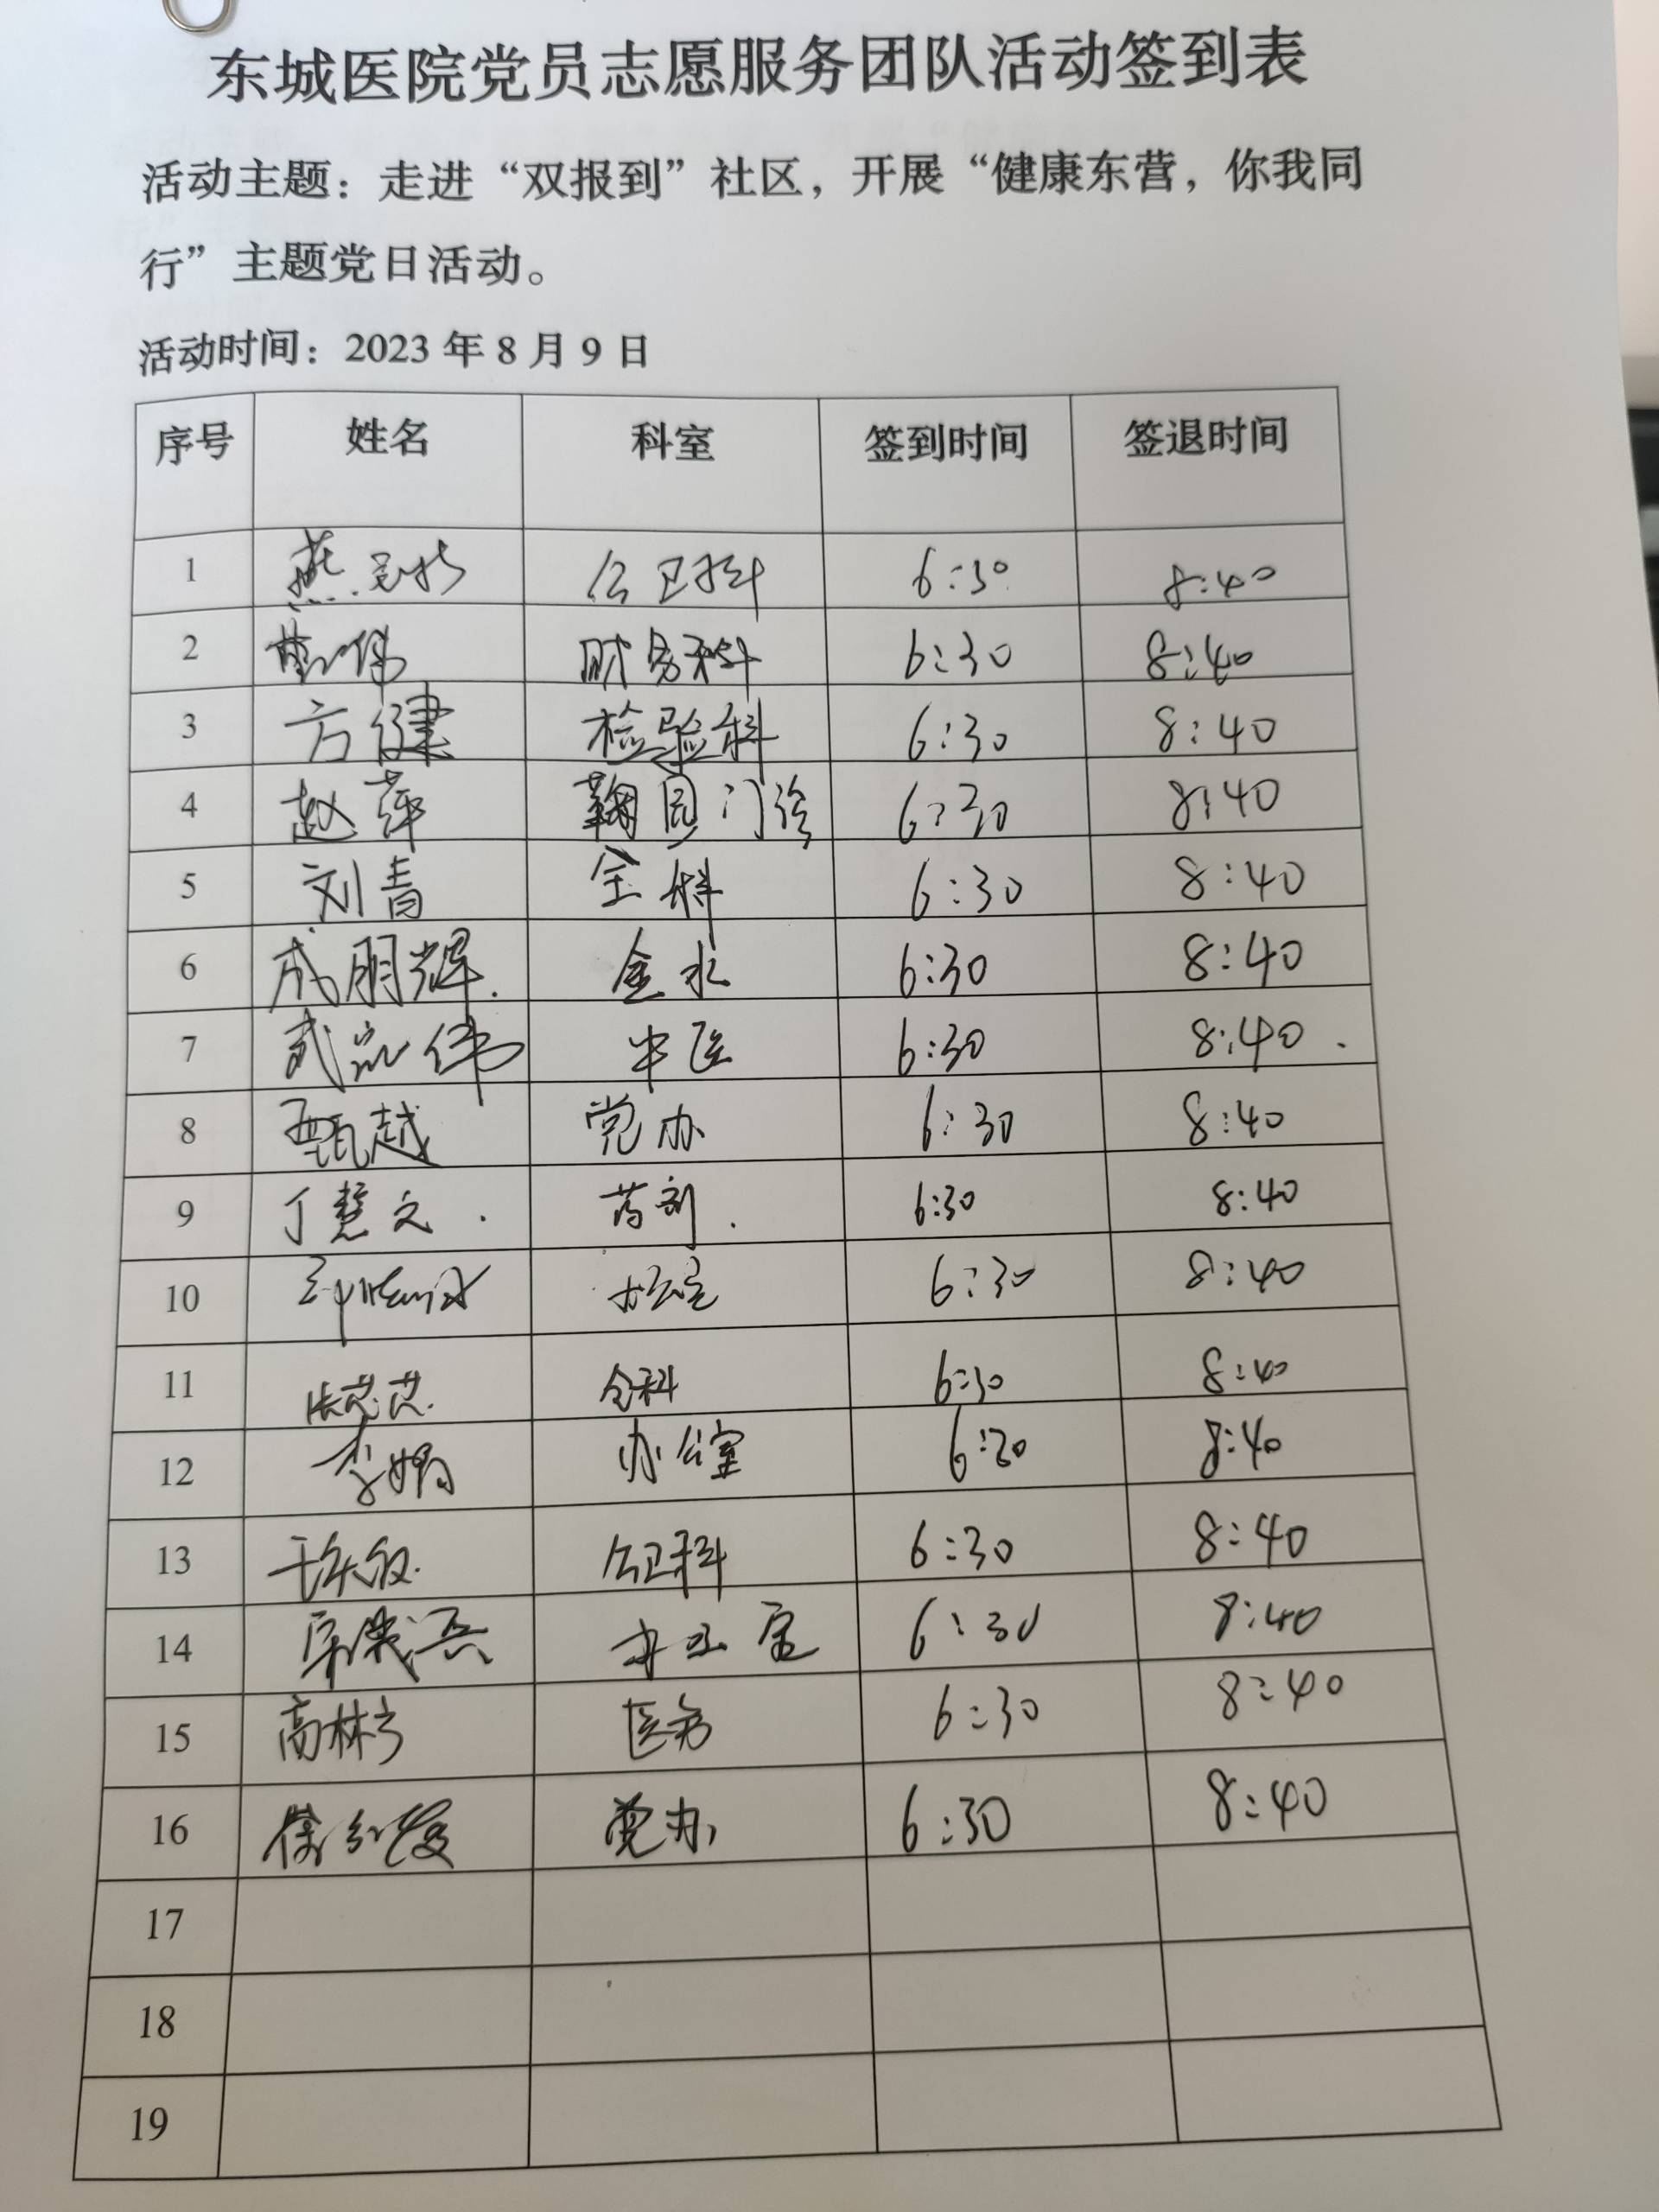 东城医院党员志愿服务团队活动签到表
活动主题：走进“双报到”社区，开展“健康东营，你我同
行”主题党日活动。
活动时间：2023 年 8 月 9 日
序号 姓名 科室 签到时间 签退时间
1 燕 公卫科 6:30 8:40
2 财务科 6:30 8:40
3 方健 检验科 6:30 8:40
4 赵萍 菊园门诊 6:30 8:40
5 刘青 全科 6:30 8:40
6 成朋辉. 金水 6:30 8:40
7 中医 6:30 8:40.
8 甄越 党办 6:30 8:40
9 丁慧文. 药剂. 6:30 8:40
10 办公室 6:30 8:40
11 张芸芸. 全科 6:30 8:40
12 李娟 办公室 6:30 8:40
13 公卫科 6:30 8:40
14 办公室 6:30 8:40
15 医务 6:30 8:40
16 党办 6:30 8:40
17
18
19